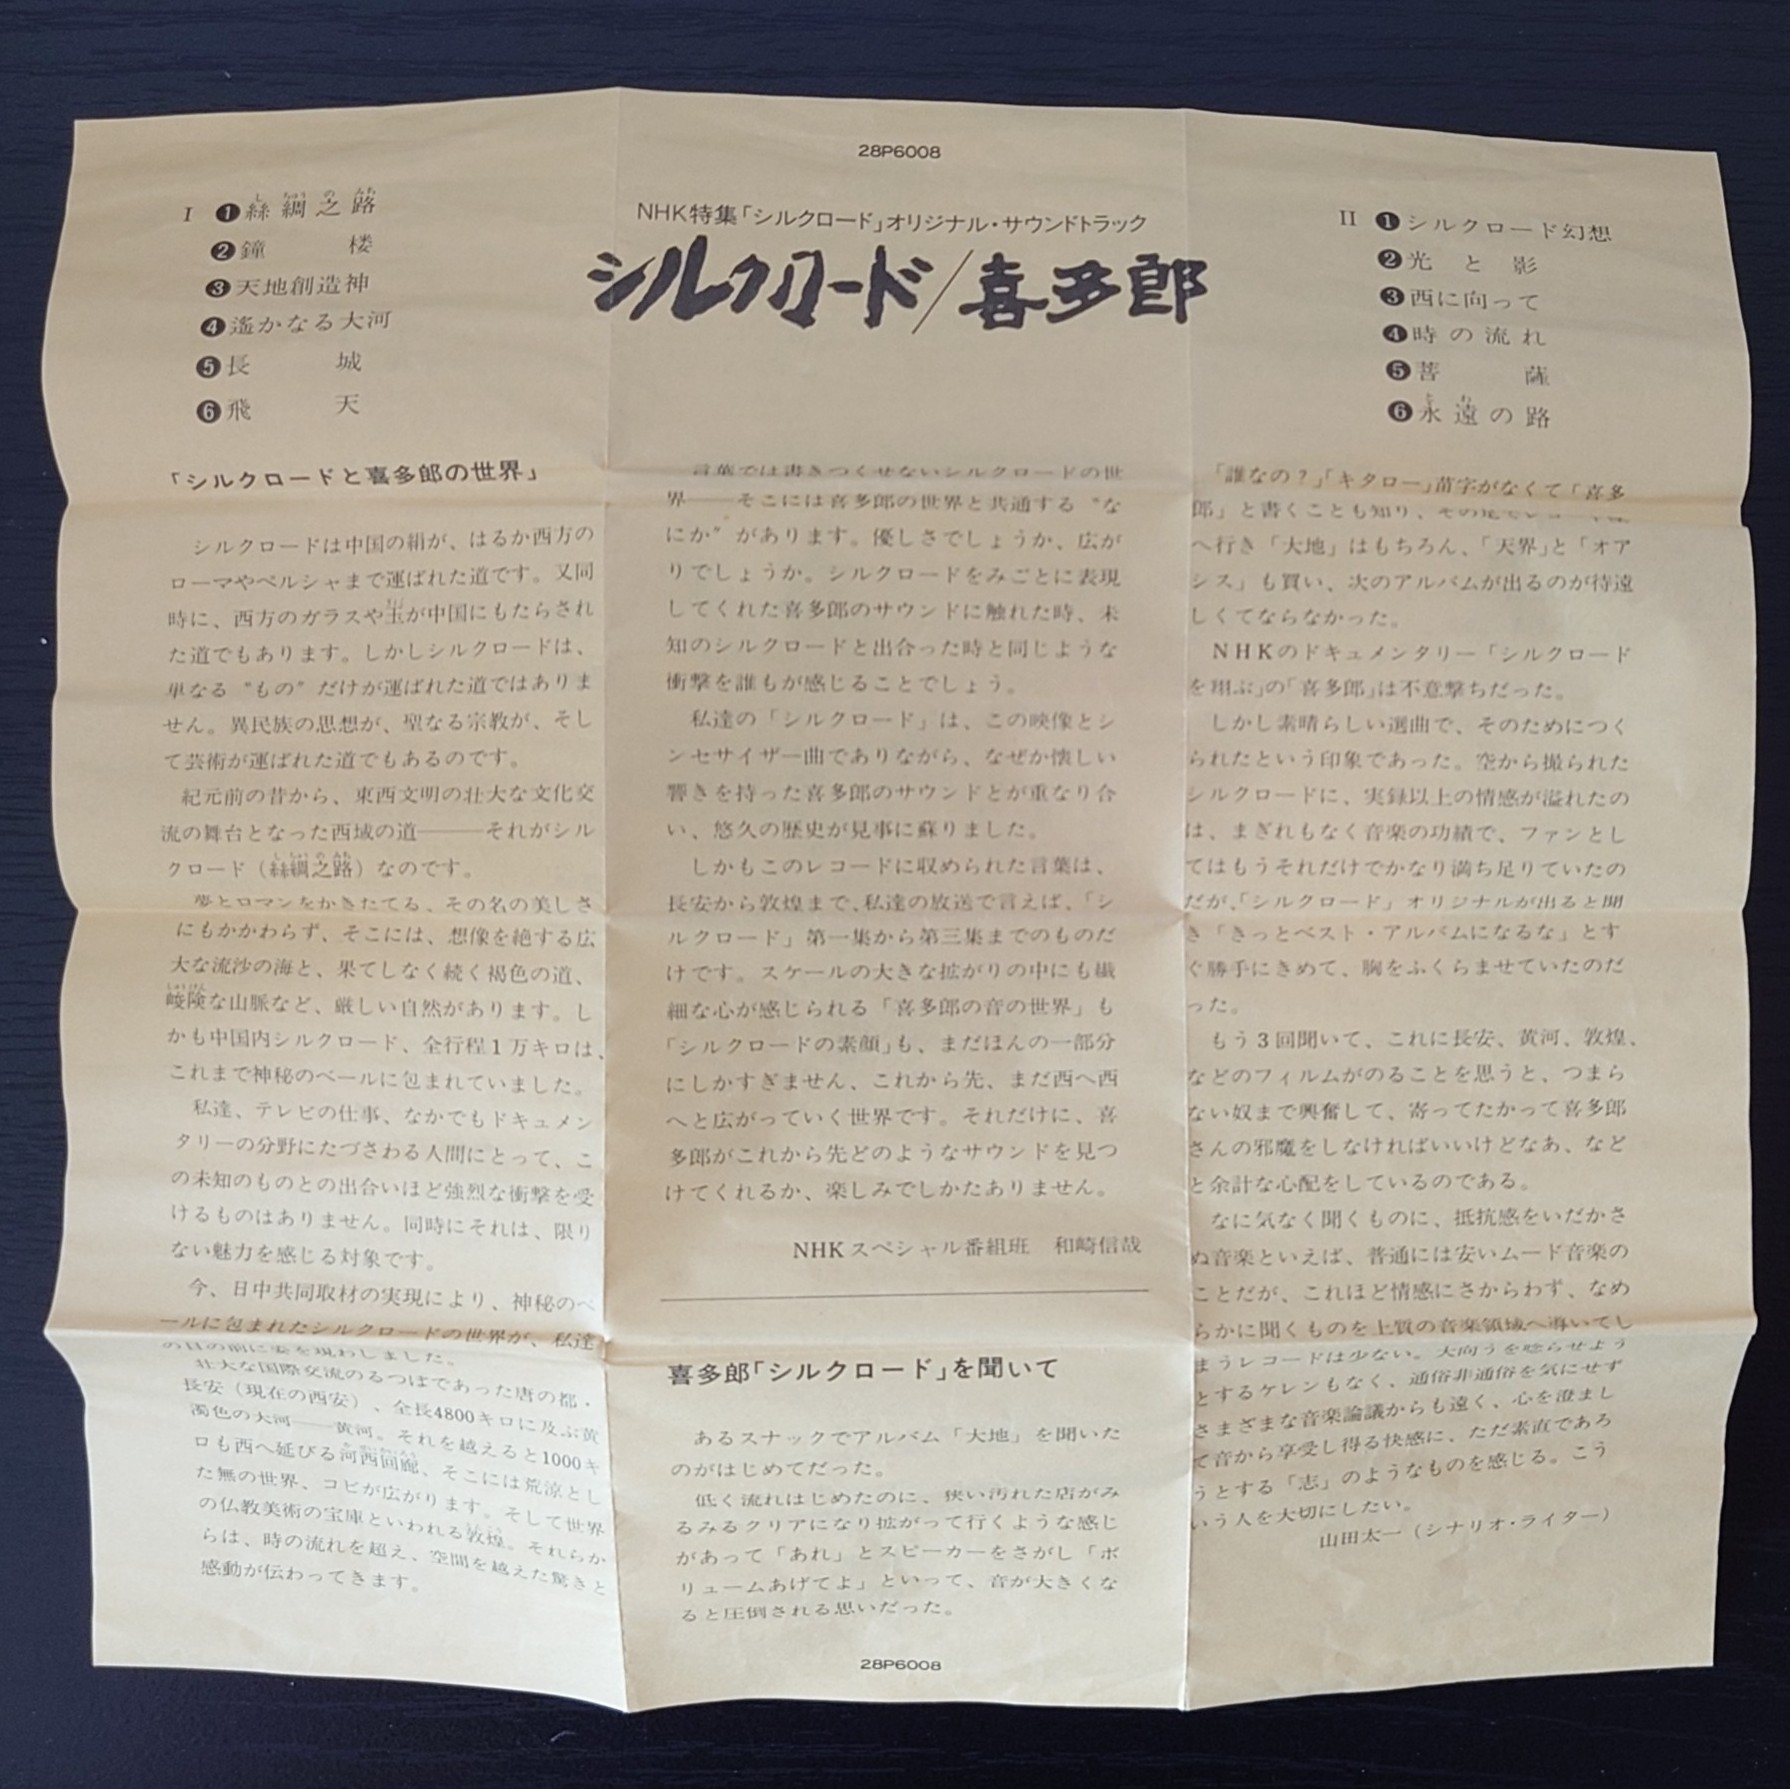 28P6008
I ❶絲綢之路
❷鐘楼
❸天地創造神
❹遙かなる大河
❺長城
❻飛天
NHK特集「シルクロード」オリジナル・サウンドトラック
シルクロード/喜多郎
II ❶シルクロード幻想
❷光と影
❸西に向って
❹時の流れ
❺菩薩
❻永遠の路
「シルクロードと喜多郎の世界」
シルクロードは中国の絹が、はるか西方の
ローマやペルシャまで運ばれた道です。又同
時に、西方のガラスや玉が中国にもたらされ
た道でもあります。しかしシルクロードは、
単なる〝もの〟だけが運ばれた道ではありま
せん。異民族の思想が、聖なる宗教が、そし
て芸術が運ばれた道でもあるのです。
紀元前の昔から、東西文明の壮大な文化交
流の舞台となった西域の道――それがシル
クロード(絲綢之路)なのです。
夢とロマンをかきたてる、その名の美しさ
にもかかわらず、そこには、想像を絶する広
大な流沙の海と、果てしなく続く褐色の道、
峻険な山脈など、厳しい自然があります。し
かも中国内シルクロード、全行程1万キロは、
これまで神秘のベールに包まれていました。
私達、テレビの仕事、なかでもドキュメン
タリーの分野にたづさわる人間にとって、こ
の未知のものとの出合いほど強烈な衝撃を受
けるものはありません。同時にそれは、限り
ない魅力を感じる対象です。
今、日中共同取材の実現により、神秘のベ
ールに包まれたシルクロードの世界が、私達
の目の前に姿を現わしました。
壮大な国際交流のるつぼであった唐の都・
長安(現在の西安)、全長4800キロに及ぶ黄
濁色の大河――黄河。それを越えると1000キ
ロも西へ延びる河西回廊、そこには荒涼とし
た無の世界、コビが広がります。そして世界
の仏教美術の宝庫といわれる敦煌。それらか
らは、時の流れを超え、空間を越えた驚きと
感動が伝わってきます。
言葉では書きつくせないシルクロードの世
界――そこには喜多郎の世界と共通する〝な
にか〟があります。優しさでしょうか、広が
りでしょうか。シルクロードをみごとに表現
してくれた喜多郎のサウンドに触れた時、未
知のシルクロードと出合った時と同じような
衝撃を誰もが感じることでしょう。
私達の「シルクロード」は、この映像とシ
ンセサイザー曲でありながら、なぜか懐しい
響きを持った喜多郎のサウンドとが重なり合
い、悠久の歴史が見事に蘇りました。
しかもこのレコードに収められた言葉は、
長安から敦煌まで、私達の放送で言えば、「シ
ルクロード」第一集から第三集までのものだ
けです。スケールの大きな拡がりの中にも繊
細な心が感じられる「喜多郎の音の世界」も
「シルクロードの素顔」も、まだほんの一部分
にしかすぎません、これから先、まだ西へ西
へと広がっていく世界です。それだけに、喜
多郎がこれから先どのようなサウンドを見つ
けてくれるか、楽しみでしかたありません。
NHKスペシャル番組班 和崎信哉
喜多郎「シルクロード」を聞いて
あるスナックでアルバム「大地」を聞いた
のがはじめてだった。
低く流れはじめたのに、狭い汚れた店がみ
るみるクリアになり拡がって行くような感じ
があって「あれ」とスピーカーをさがし「ボ
リュームあげてよ」といって、音が大きくな
ると圧倒される思いだった。
「誰なの?」「キタロー」苗字がなくて「喜多
郎」と書くことも知り、その足でレコード店
へ行き「大地」はもちろん、「天界」と「オア
シス」も買い、次のアルバムが出るのが待遠
しくてならなかった。
NHKのドキュメンタリー「シルクロード
を翔ぶ」の「喜多郎」は不意撃ちだった。
しかし素晴らしい選曲で、そのためにつく
られたという印象であった。空から撮られた
シルクロードに、実録以上の情感が溢れたの
は、まぎれもなく音楽の功績で、ファンとし
てはもうそれだけでかなり満ち足りていたの
だが、「シルクロード」オリジナルが出ると聞
き「きっとベスト・アルバムになるな」とす
ぐ勝手にきめて、胸をふくらませていたのだ
った。
もう3回聞いて、これに長安、黄河、敦煌、
などのフィルムがのることを思うと、つまら
ない奴まで興奮して、寄ってたかって喜多郎
さんの邪魔をしなければいいけどなあ、など
と余計な心配をしているのである。
なに気なく聞くものに、抵抗感をいだかさ
ぬ音楽といえば、普通には安いムード音楽の
ことだが、これほど情感にさからわず、なめ
らかに聞くものを上質の音楽領域へ導いてし
まうレコードは少ない。大向うを唸らせよう
とするケレンもなく、通俗非通俗を気にせず
さまざまな音楽論議からも遠く、心を澄まし
て音から享受し得る快感に、ただ素直であろ
うとする「志」のようなものを感じる。こう
いう人を大切にしたい。
山田太一(シナリオ・ライター)
28P6008